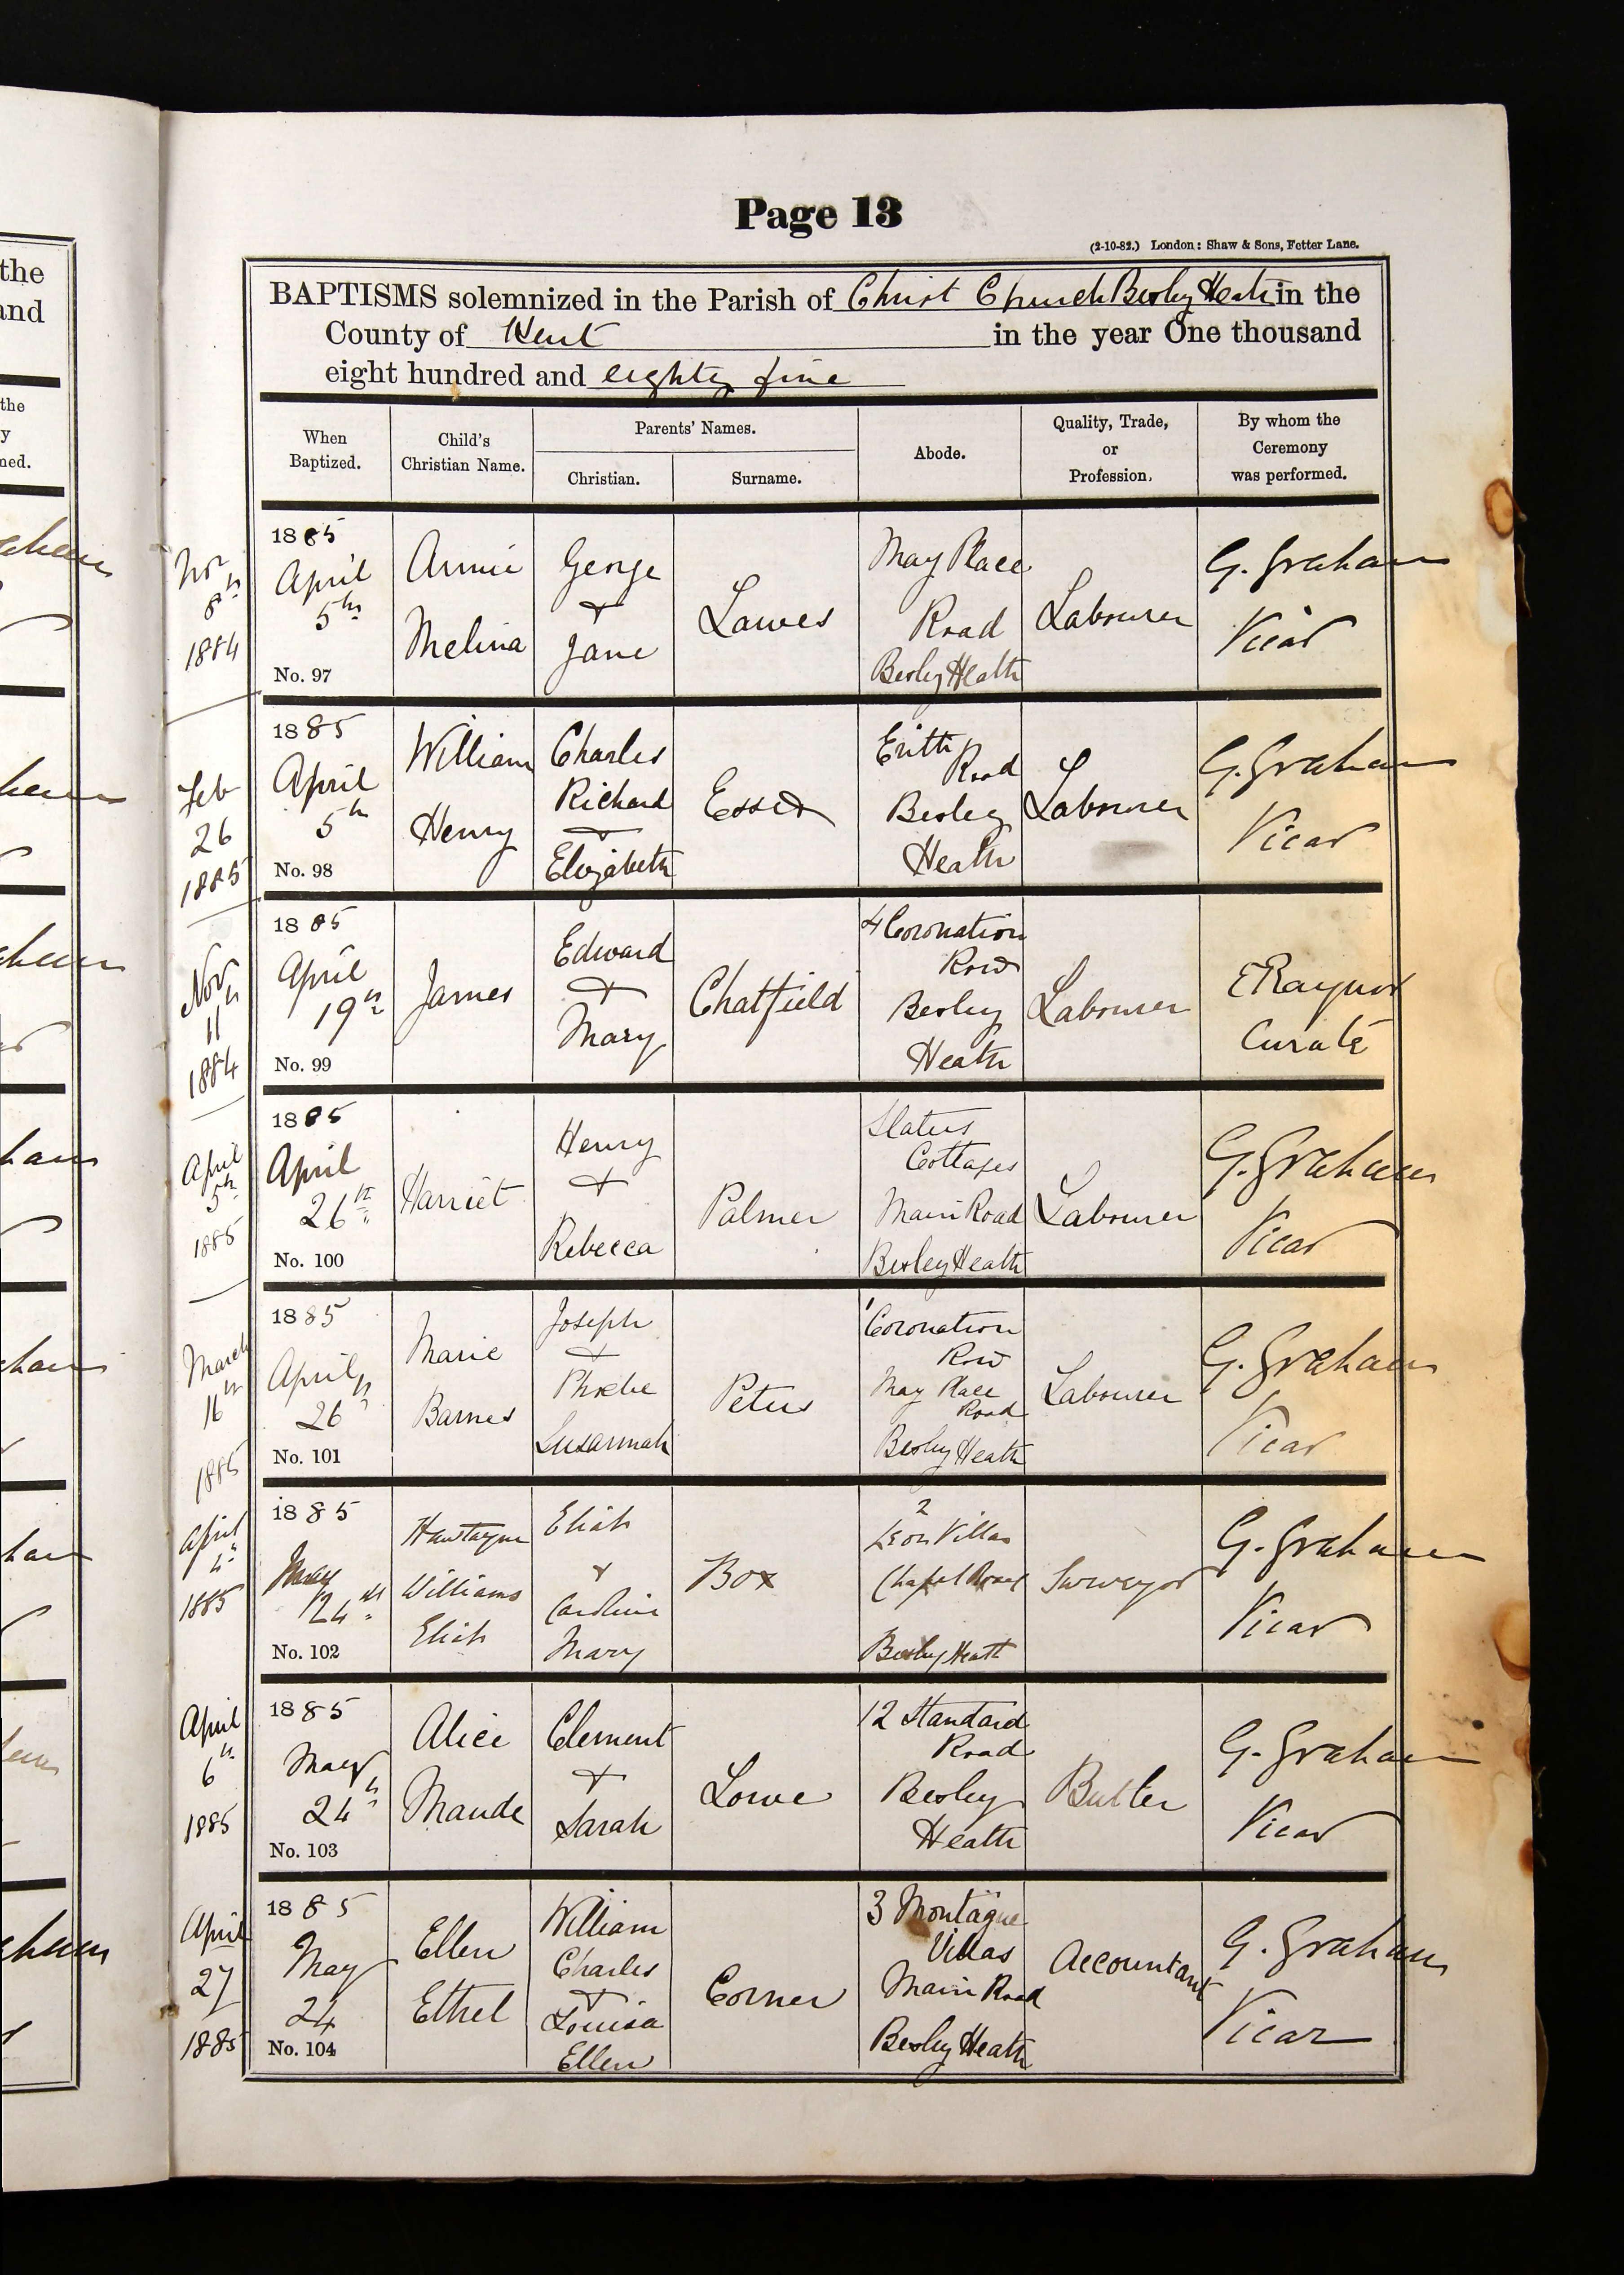 Page 13
(2-10-82.) London: Shaw & Sons, Fetter Lane.
BAPTISMS solemnized in the Parish of Christ Church Bexley Heath in the
County of Kent in the year One thousand
eight hundred and eighty five
When Baptized.
Child's Christian Name.
Parents' Names.
Christian.
Surname.
Abode.
Quality, Trade, or Profession.
By whom the Ceremony was performed.
Nov
8th
1884
1885
April
5th
No. 97
Annie
Melina
George
+
Jane
Lawes
May Place
Road
Bexley Heath
Labourer
G. Graham
Vicar
Feb
26
1885
1885
April
5th
No. 98
William
Henry
Charles
Richard
+
Elizabeth
Essex
Erith
Road
Bexley
Heath
Labourer
G. Graham
Vicar
Nov
11th
1884
1885
April
19th
No. 99
James
Edward
+
Mary
Chatfield
4 Coronation
Row
Bexley
Heath
Labourer
E Raynor
Curate
April
5th
1885
1885
April
26th
No. 100
Harriet
Henry
+
Rebecca
Palmer
Slaters
Cottages
Main Road
Bexley Heath
Labourer
G. Graham
Vicar
March
16th
1885
1885
April
26th
No. 101
Marie
Barnes
Joseph
+
Phoebe
Susannah
Peters
1 Coronation
Row
May Place
Road
Bexley Heath
Labourer
G. Graham
Vicar
April
4th
1885
1885
May
24th
No. 102
Williams
Eliah
Eliah
+
Caroline
Mary
Box
2
Villas
Chapel Road
Bexley Heath
Surveyor
G. Graham
Vicar
April
6th
1885
1885
May
24th
No. 103
Alice
Maude
Clement
+
Sarah
Lowe
12 Standard
Road
Bexley
Heath
Butler
G. Graham
Vicar
April
27
1885
1885
May
24
No. 104
Ellen
Ethel
William
Charles
+
Louisa
Ellen
Corner
3 Montague
Villas
Main Road
Bexley Heath
Accountant
G. Graham
Vicar